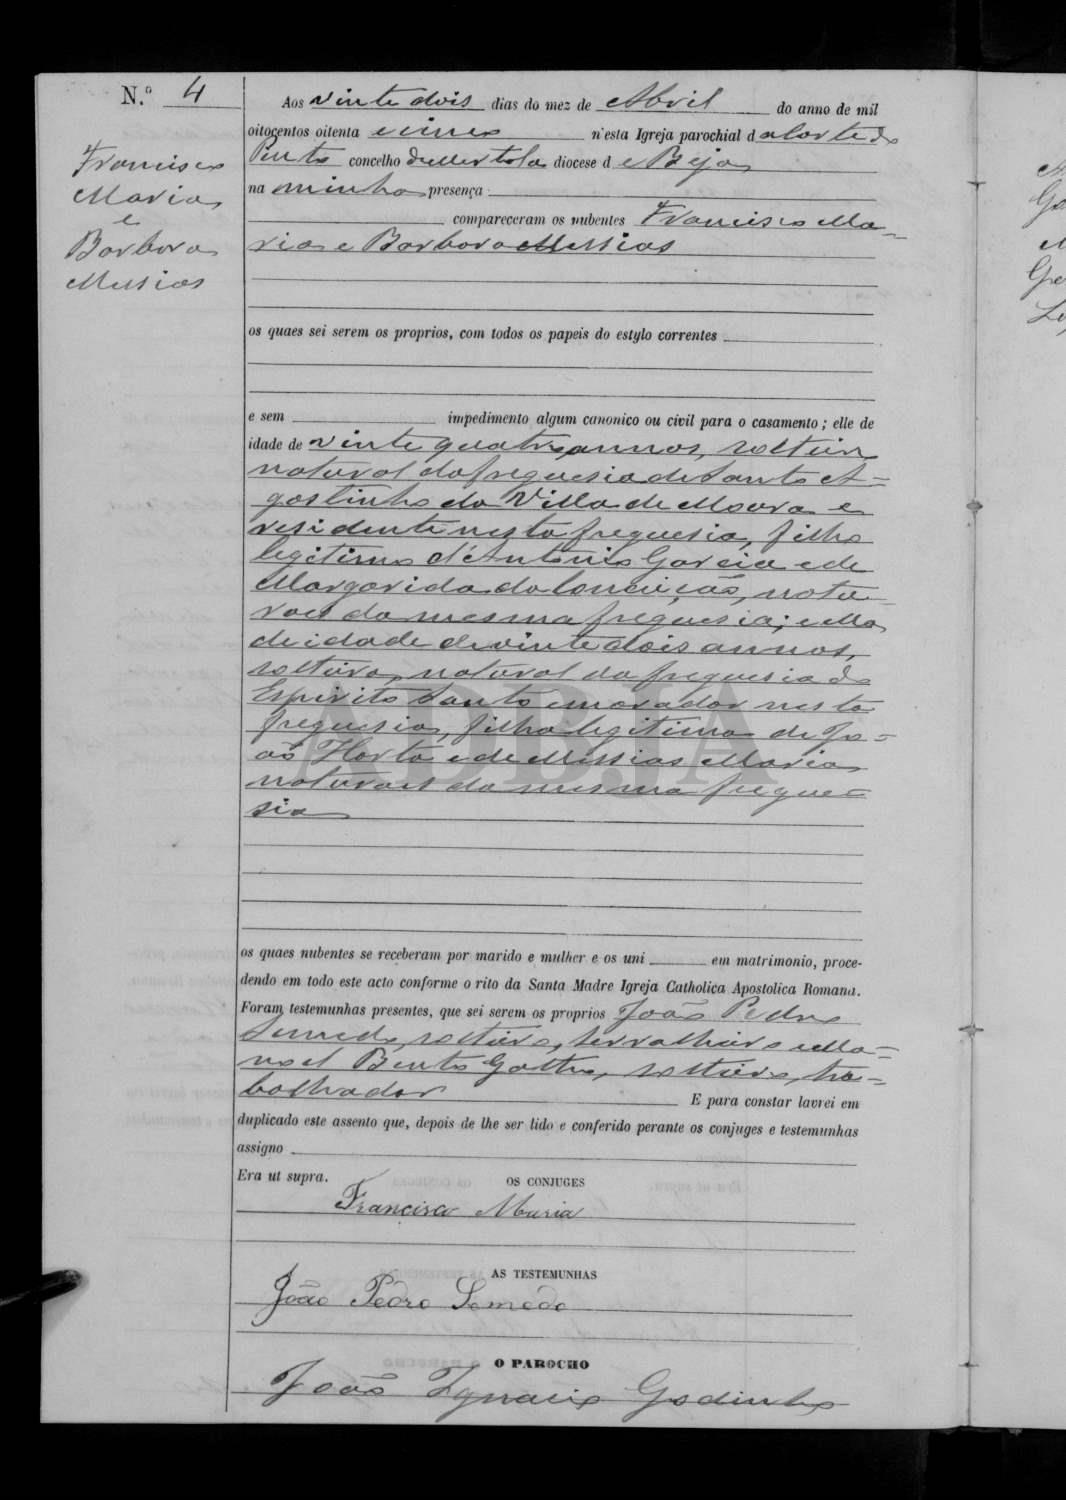 N.º 4
Francisco
Maria
e
Barbora
Messias
Aos vinte dois dias do mez de Abril do anno de mil
oitocentos oitenta e cinco n'esta Igreja parochial da Corte do
Pinto concelho de Mertola diocese de Beja
na minha presença
compareceram os nubentes Francisco Ma-
ria e Barbora Messias
os quaes sei serem os proprios, com todos os papeis do estylo correntes
e sem impedimento algum canonico ou civil para o casamento; elle de
idade de vinte quatro annos, solteiro
natural da freguesia de Santo A-
gostinho da Villa de Moura e
residente nesta freguesia, filho
legitimo d'Antonio Garcia e de
Margarida da Conceição, natu-
raes da mesma freguesia; e ella
de idade de vinte dois annos,
solteira, natural da freguesia do
Espirito Santo e morador nesta
freguesia, filha legitima de Jo-
aõ Horta e de Missias Maria
naturaes da mesma fregue-
sia
os quaes nubentes se receberam por marido e mulher e os uni em matrimonio, proce-
dendo em todo este acto conforme o rito da Santa Madre Igreja Catholica Apostolica Romana.
Foram testemunhas presentes, que sei serem os proprios João Pedro
Semedo, solteiro, serralheiro e Ma-
noel Bento Galtro, solteiro, tra-
balhador E para constar lavrei em
duplicado este assento que, depois de lhe ser lido e conferido perante os conjuges e testemunhas
assigno
Era ut supra.
OS CONJUGES
Francisco Maria
AS TESTEMUNHAS
João Pedro Semedo
O PAROCHO
João Ignacio Godinho
ADBJA